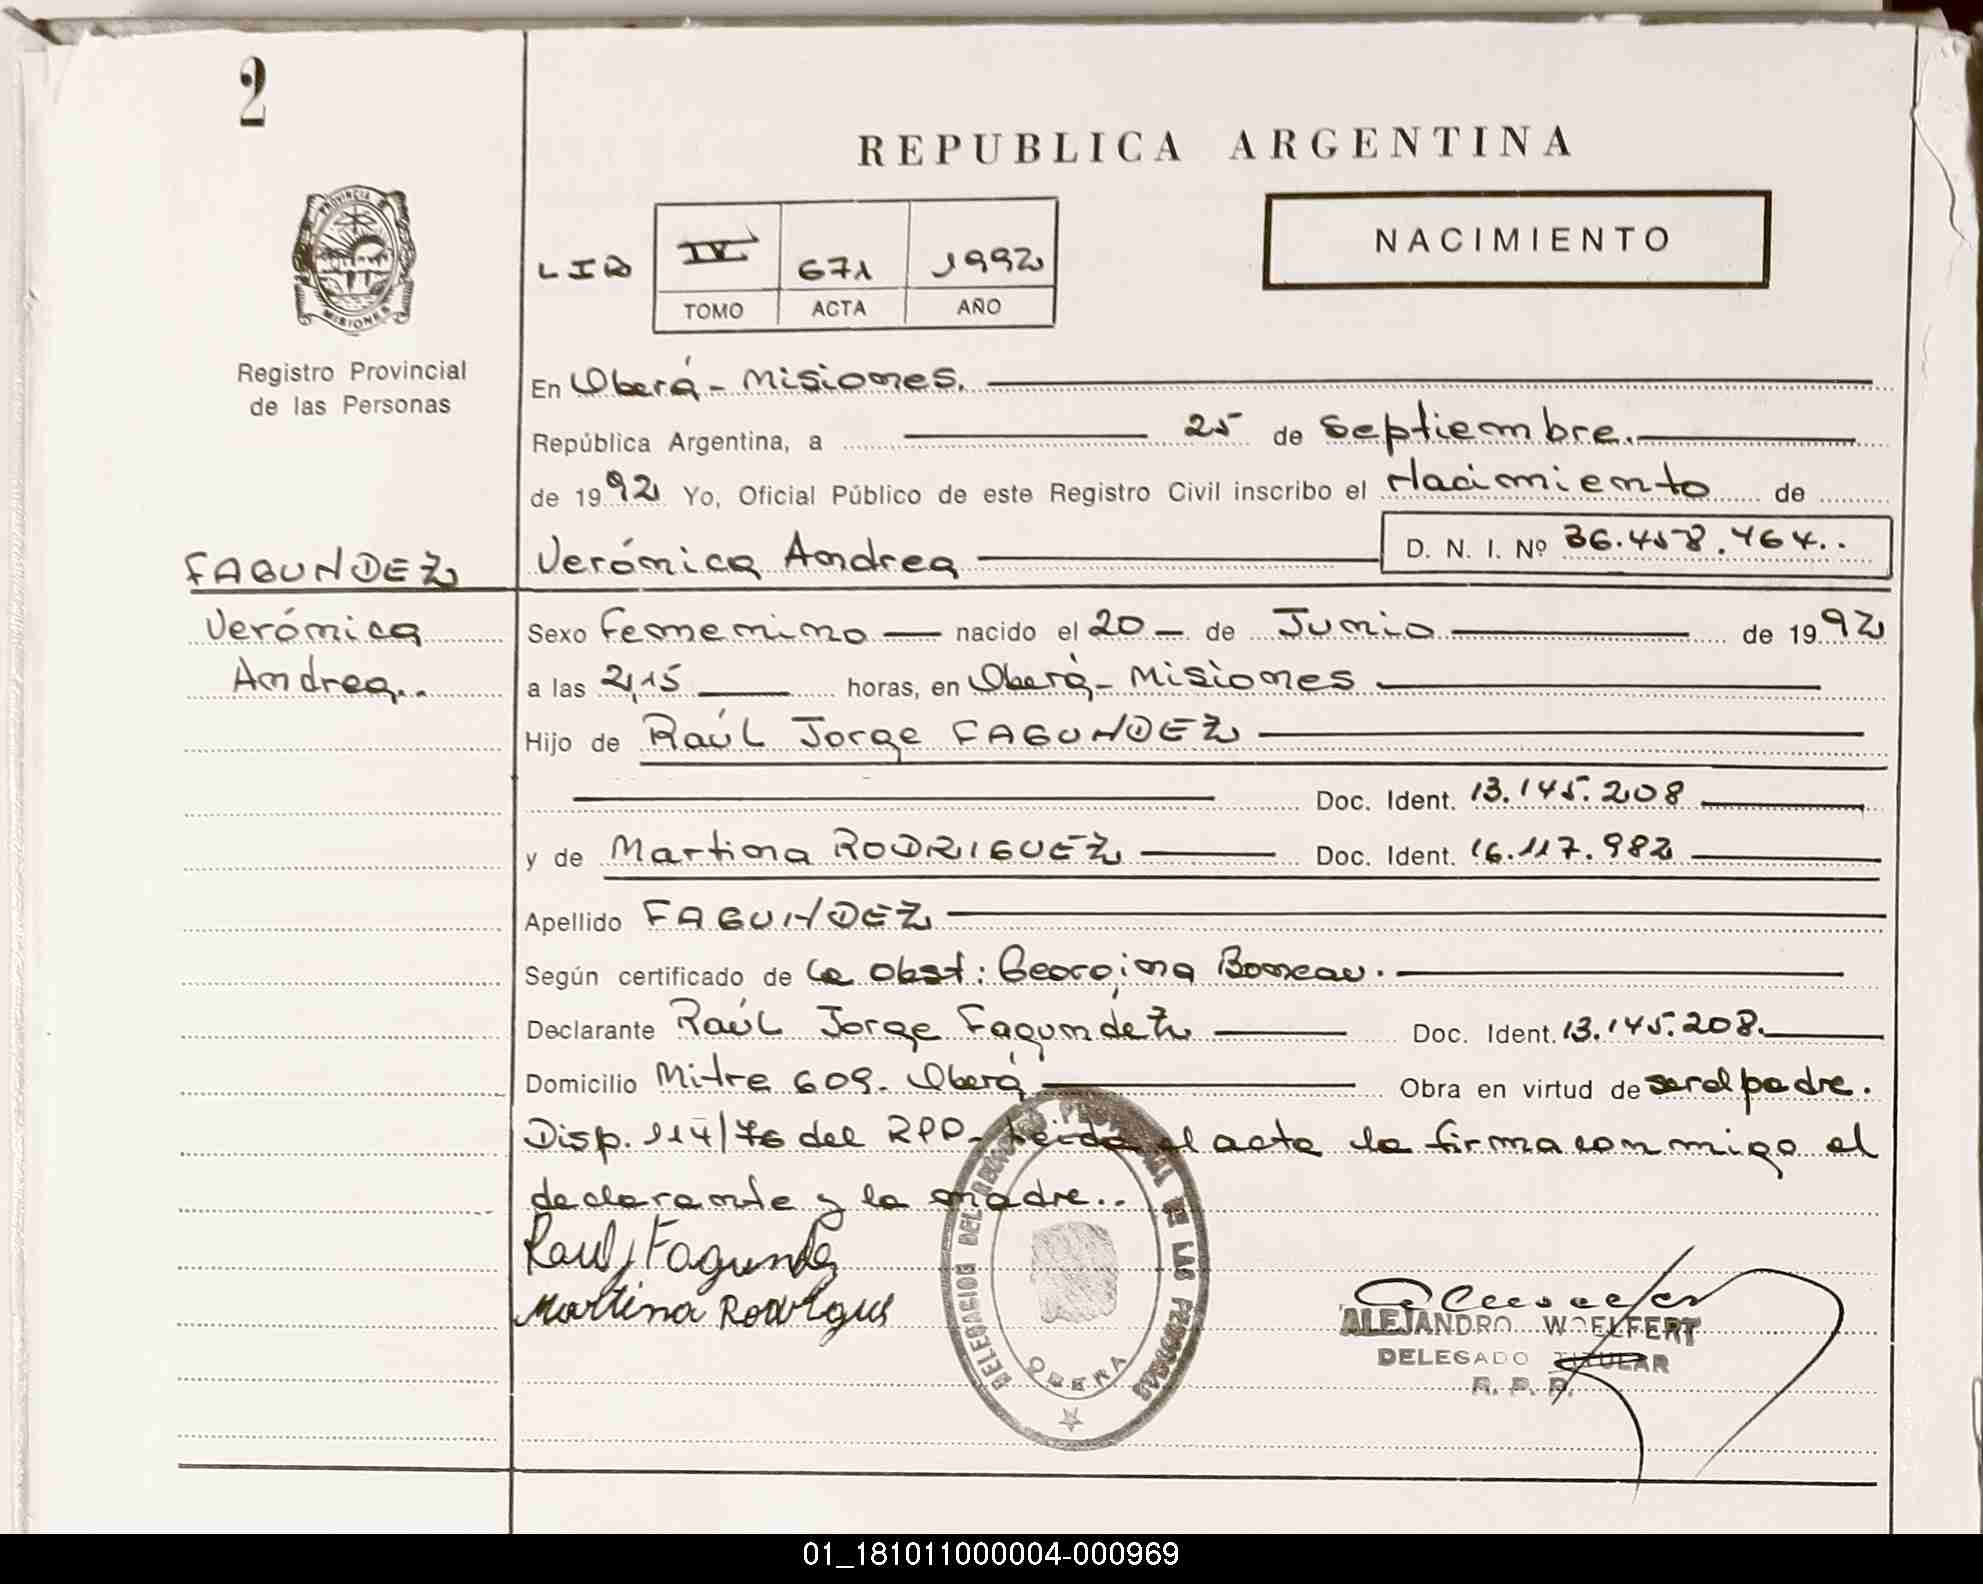 2
REPUBLICA ARGENTINA
NACIMIENTO
PROVINCIA DE
MISIONES
LIB IV 671 1992
TOMO ACTA AÑO
Registro Provincial
de las Personas
En Oberá - Misiones.
República Argentina, a 25 de Septiembre.
de 1992 Yo, Oficial Público de este Registro Civil inscribo el Nacimiento de
FAGUNDEZ Verónica Andrea D. N. I. Nº 36.458.764..
Verónica Sexo Femenino nacido el 20 - de Junio de 1992
Andrea.. a las 2,15 horas, en Oberá - Misiones
Hijo de Raúl Jorge FAGUNDEZ
Doc. Ident. 13.145.208
y de Martina RODRIGUEZ Doc. Ident. 16.117.982
Apellido FAGUNDEZ
Según certificado de la Obst: Georgina
Declarante Raúl Jorge Fagúndez Doc. Ident. 13.145.208.
Domicilio Mitre 609. Oberá Obra en virtud de ser el padre.
Disp. 114/76 del RPP. Leída el acta la firma conmigo el
declarante y la madre..
Raul J Fagundez
Martina Rodrigues
DELEGACION DEL REGISTRO PROVINCIAL DE LAS PERSONAS
OBERA
ALEJANDRO WOELFERT
DELEGADO TITULAR
R. P. P.
01_181011000004-000969